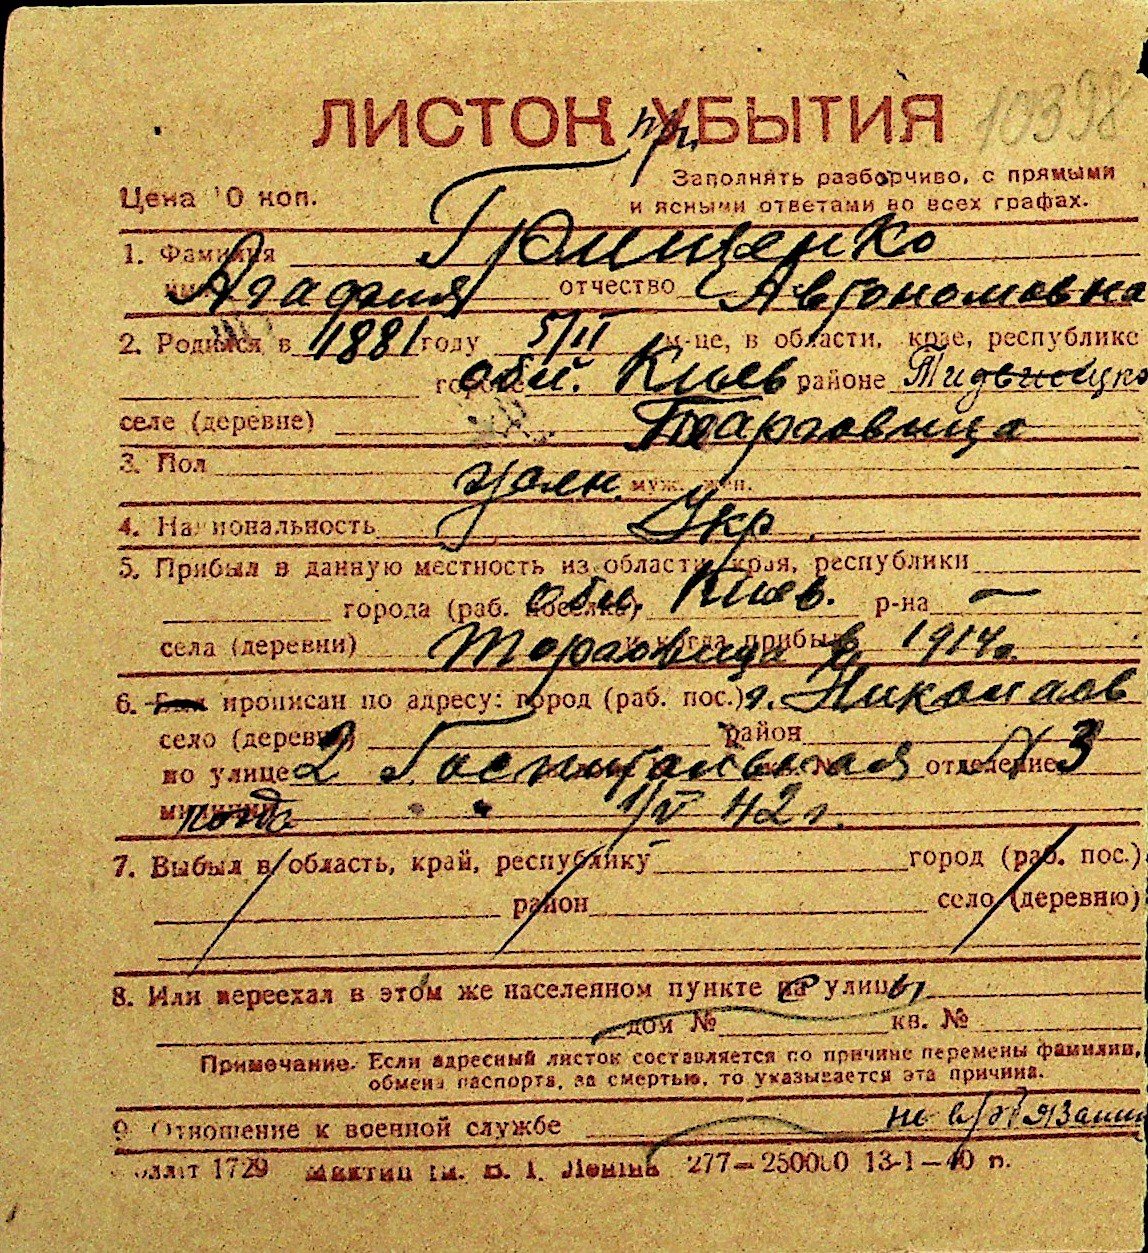 10398
ЛИСТОК УБЫТИЯ
пр.
Цена 10 коп.
Заполнять разборчиво, с прямыми
и ясными ответами во всех графах.
1. Фамилия Грищенко
имя Агафия отчество Автономовна
2. Родился в 1881 году 5/II м-це, в области, крае, республике
городе обл. Киев районе
селе (деревне) Тарговица
3. Пол муж. жен. жен.
4. Национальность Укр.
5. Прибыл в данную местность из области, края, республики
города (раб. поселка) обл. Киев. р-на —
села (деревни) Торговица и когда прибыл в 1914 г.
6. Был прописан по адресу: город (раб. пос.) г. Николаев
село (деревня) район
по улице 2 Госпитальная № 3 отделение
милиции когда " " 1/VI 42 г.
7. Выбыл в область, край, республику город (раб. пос.)
район село (деревню)
8. Или переехал в этом же населенном пункте на улицу
дом № кв. №
Примечание. Если адресный листок составляется по причине перемены фамилии,
обмена паспорта, за смертью, то указывается эта причина.
9. Отношение к военной службе
1729 им. В. И. Ленина 277—250000 13-1—40 п.